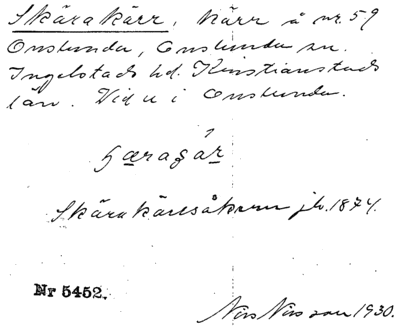 Skärakärr, kärr å nr. 59
Onslunda, Onslunda sn.
Ingelstads hd. Kristianstads
län. Vid u i Onslunda.
Skärakärrsåkern jb. 1874.
Nr 5452.
Nils Nilsson 1930.